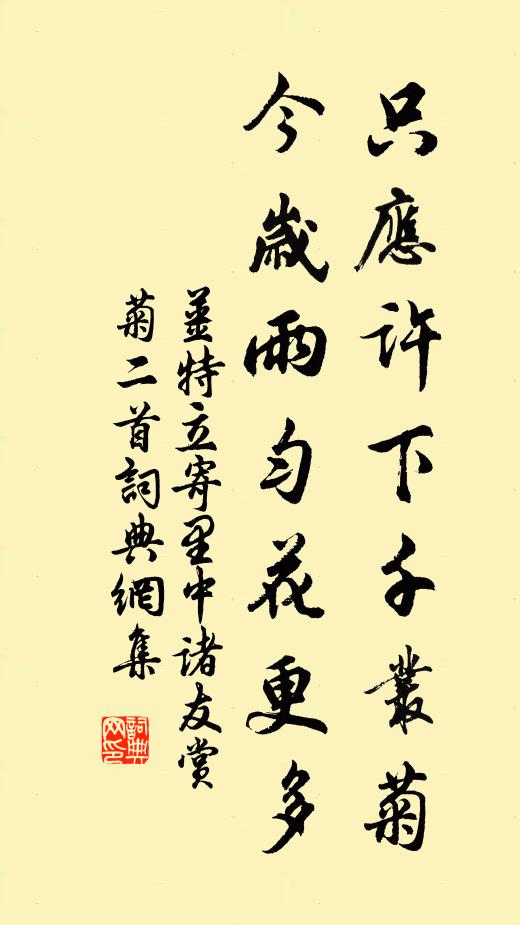 只應許下千叢菊
今歲雨勻花更多
姜特立寄里中諸友賞
菊二首詞典網集
詞典
網印